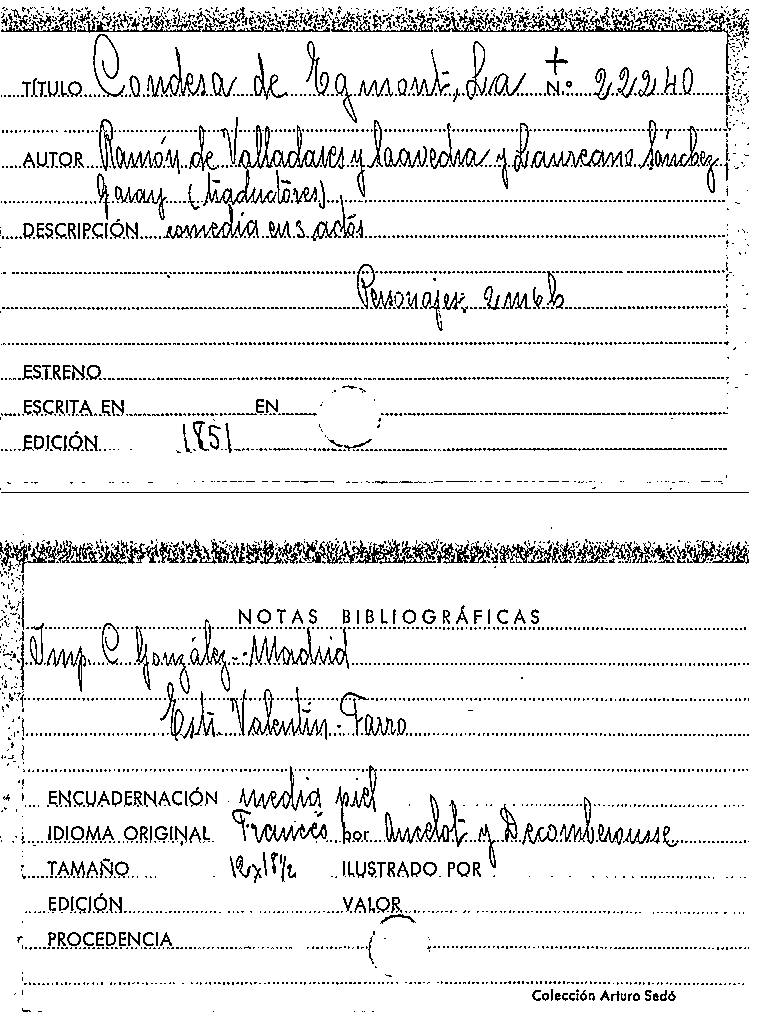 TÍTULO Condesa de Egmont, La + N.º 22240
AUTOR Ramón de Valladares y Saavedra y Laureano Sánchez
Garay (traductores)
DESCRIPCIÓN comedia en 3 actos
Personajes: 2m6h
ESTRENO
ESCRITA EN EN
EDICIÓN 1851
NOTAS BIBLIOGRÁFICAS
Imp. C. González - Madrid
Est. Valentín - Farro
ENCUADERNACIÓN media piel
IDIOMA ORIGINAL Francés por Ancelot y Decomberousse
TAMAÑO 12x18½ ILUSTRADO POR
EDICIÓN VALOR
PROCEDENCIA
Colección Arturo Sedó